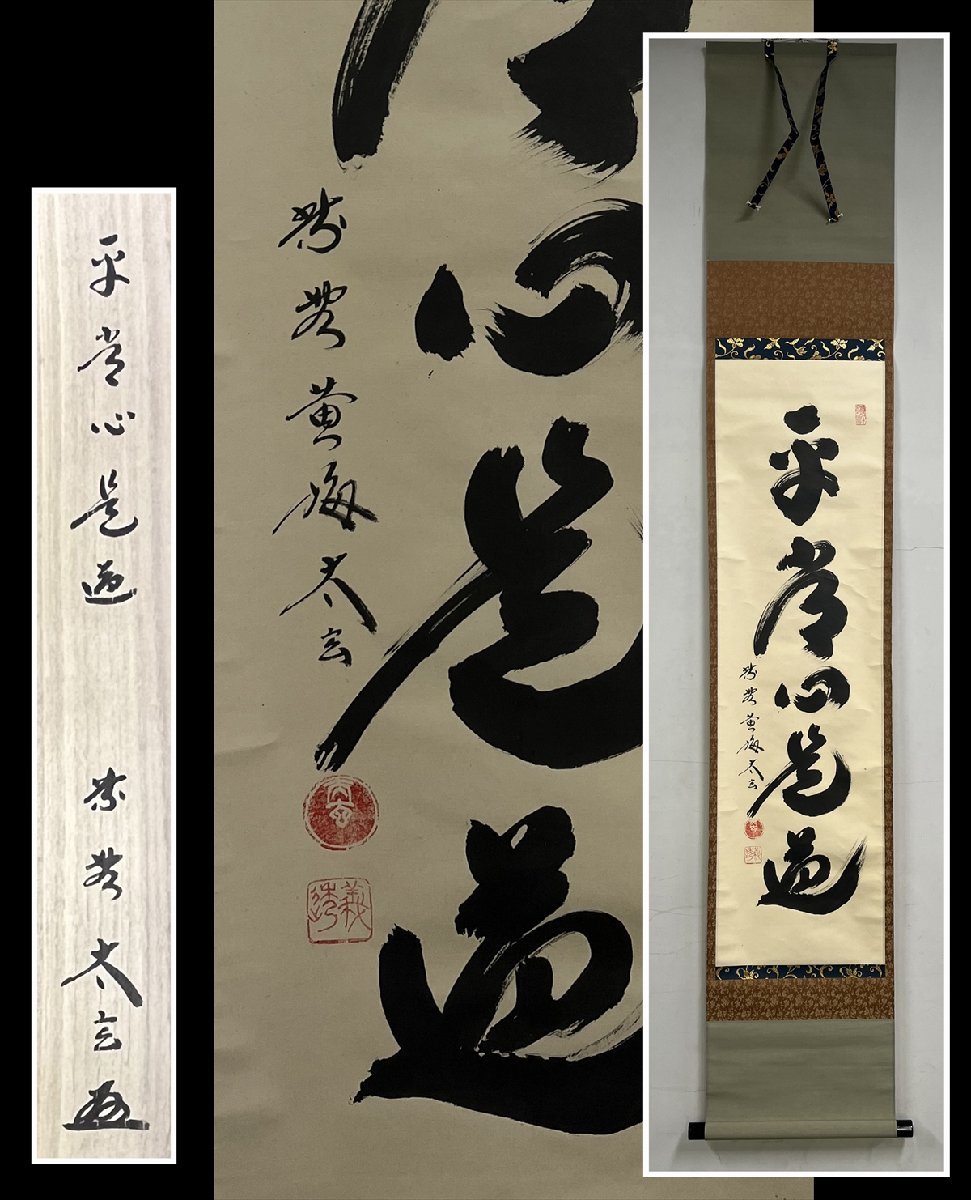 平常心是道
紫野 太玄
心是道
紫野 黄梅 太玄
平常心是道
紫野 黄梅 太玄